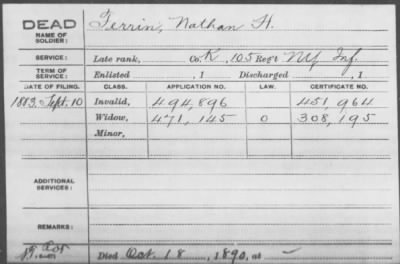 DEAD Terrin, Nathan H.
NAME OF SOLDIER:
SERVICE: Late rank, Co. K, 105 Reg't NY Inf.
TERM OF SERVICE: Enlisted , 1 Discharged , 1
DATE OF FILING. CLASS. APPLICATION NO. LAW. CERTIFICATE NO.
1883. Sept. 10 Invalid, 494,896 451,964
Widow, 471,145 0 308,195
Minor,
ADDITIONAL SERVICES:
REMARKS:
Died Oct. 18, 1890, at —